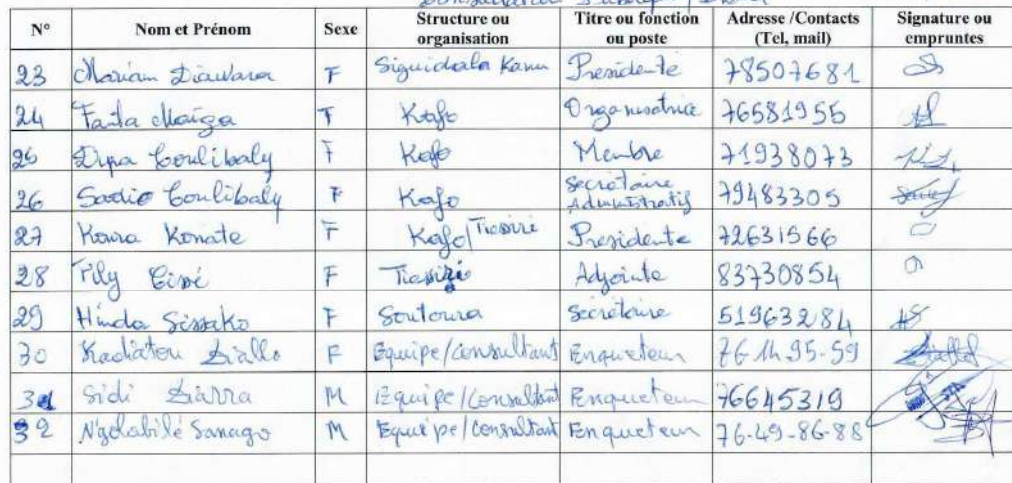 N° Nom et Prénom Sexe Structure ou organisation Titre ou fonction ou poste Adresse /Contacts (Tel, mail) Signature ou empruntes
23 Mariam Diawara F Siguidiala Kanu Presidente 78507681
24 Fanta Maïga F Kafo Organisatrice 76581955
25 Coulibaly F Kafo Membre 71938073
26 Sadio Coulibaly F Kafo Secrétaire Administratif 79483305
27 Koura Konate F Kafo/ Presidente 72631566
28 Fily Cissé F Adjointe 83730854
29 Hinda Sissako F Soutoura Secrétaire 51963284
30 Kadiatou Diallo F Equipe/Consultant Enqueteur 76 14 95-59
31 Sidi Diarra M Equipe/Consultant Enqueteur 76645319
32 N'golobilé Sanago M Equipe/Consultant Enqueteur 76-49-86-88